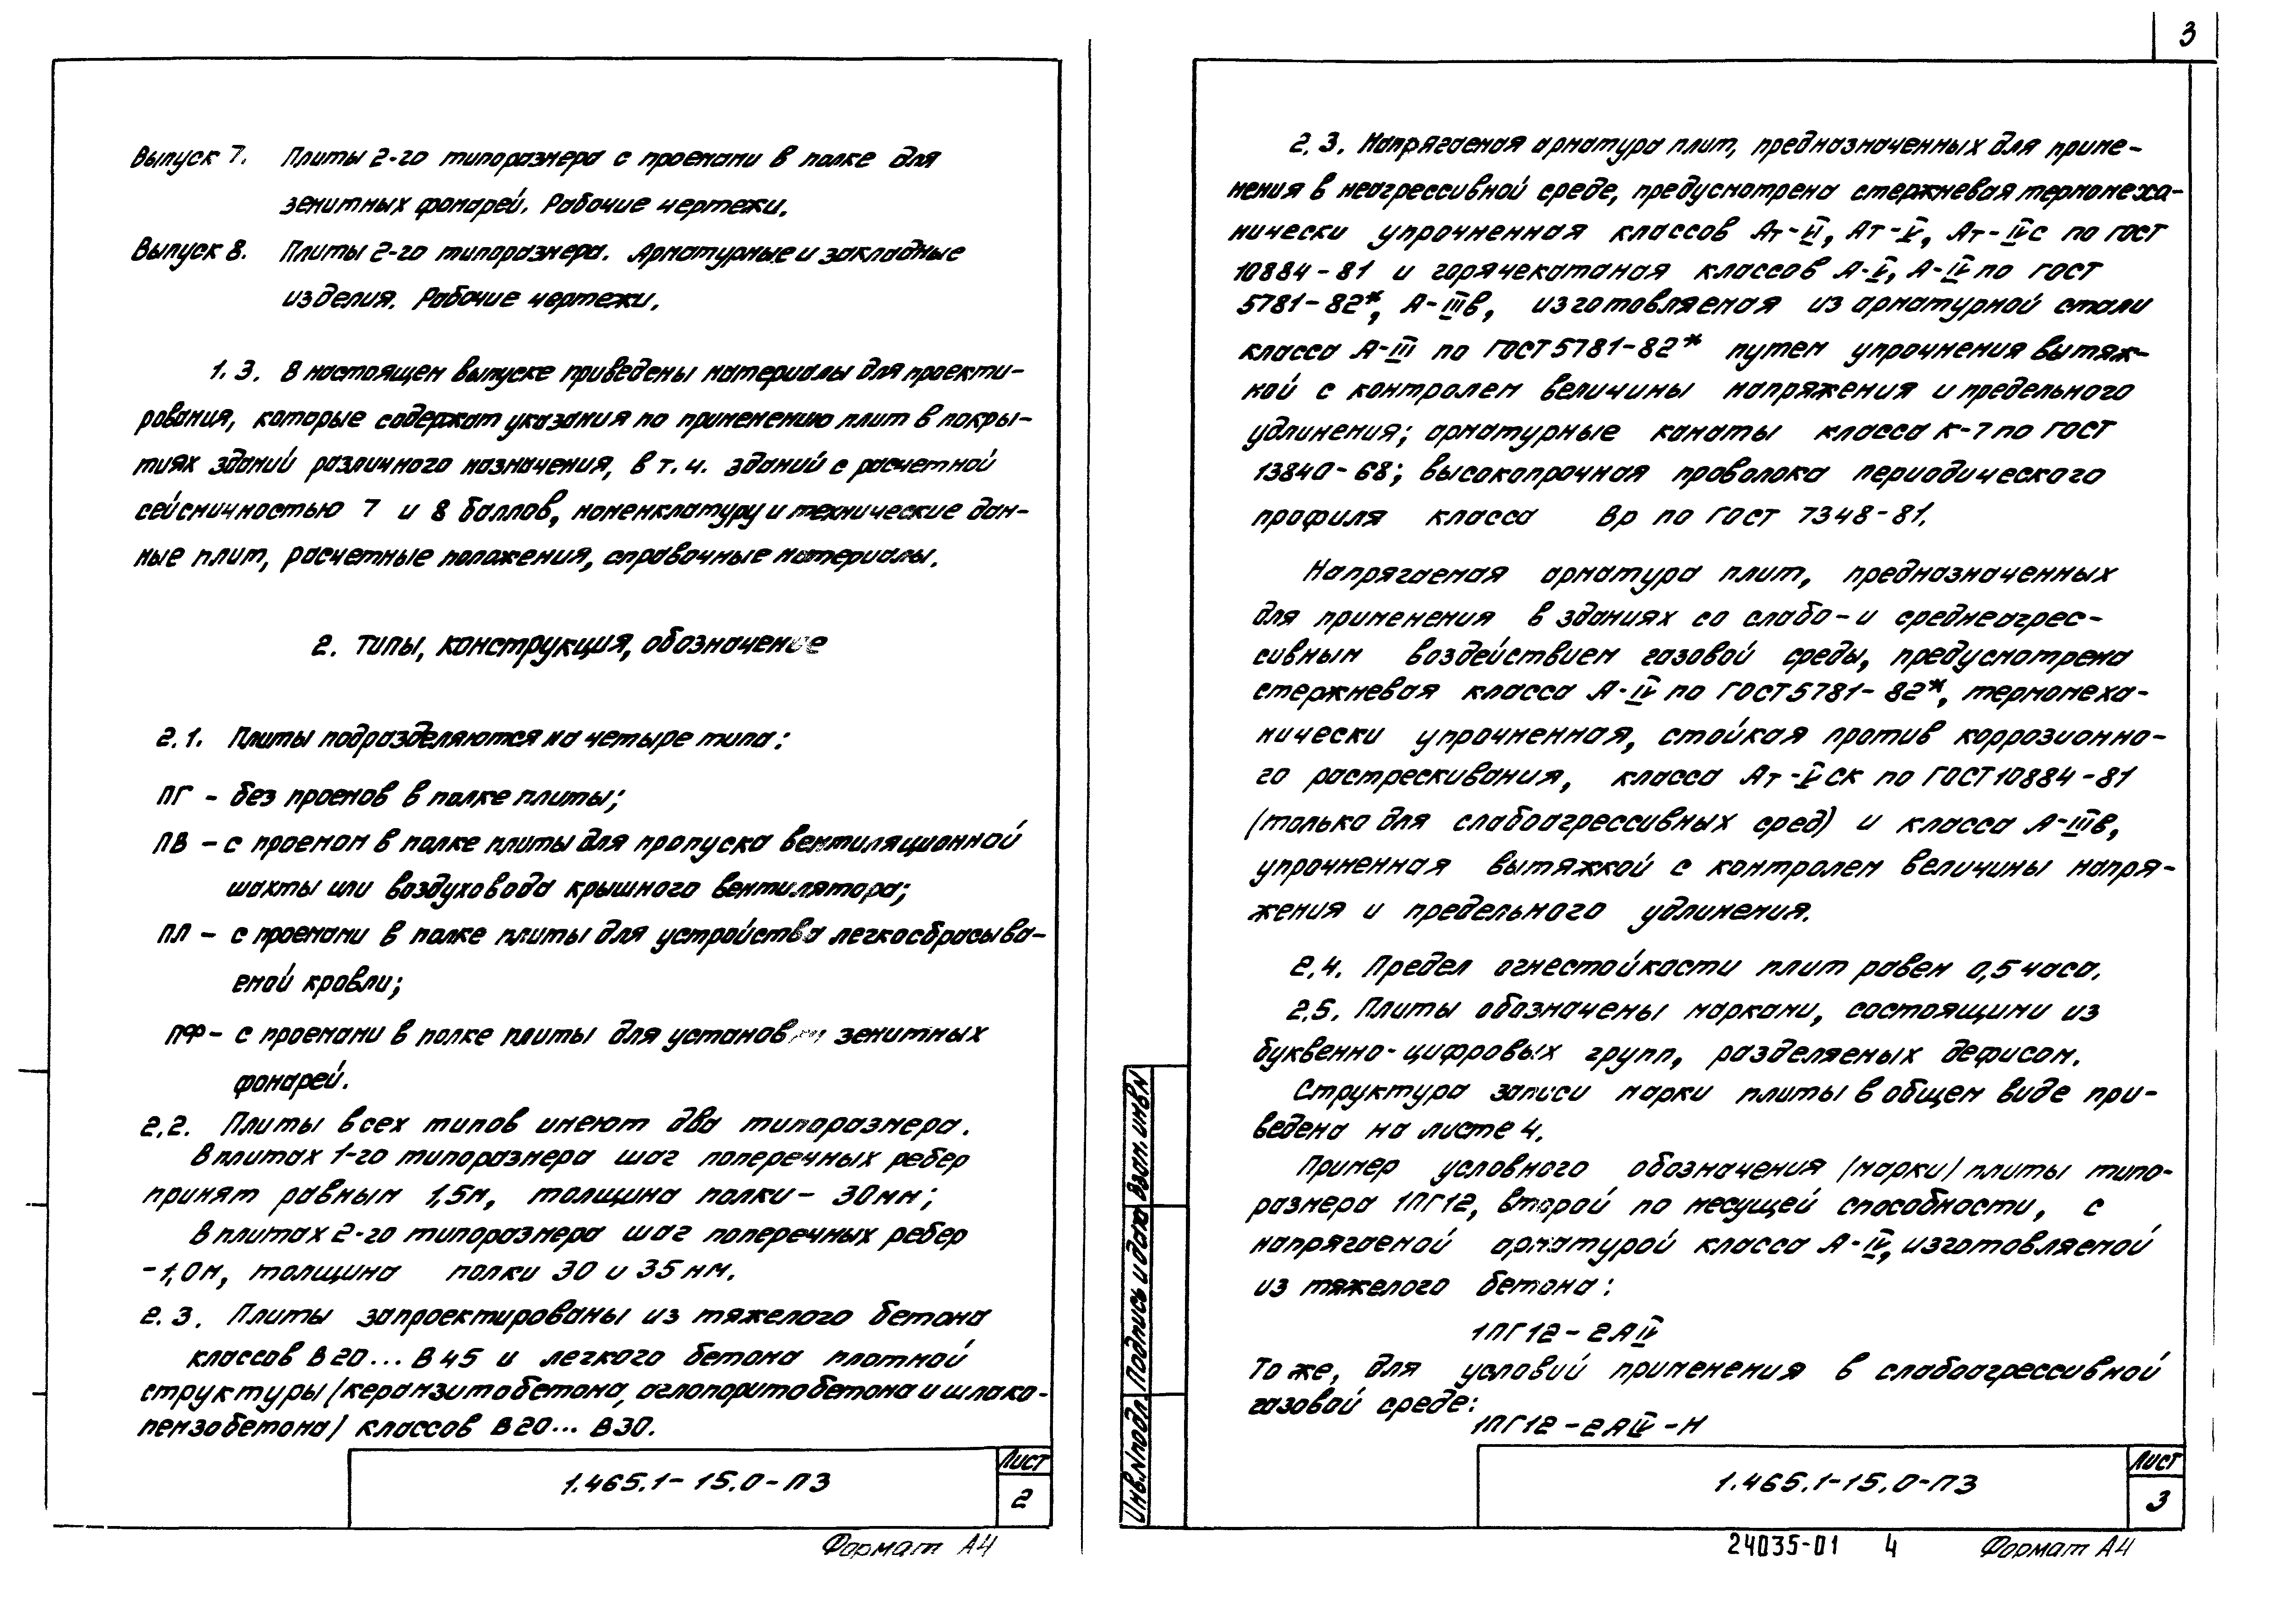 Выпуск 7. Плиты 2-го типоразмера с проемами в полке для
зенитных фонарей. Рабочие чертежи.
Выпуск 8. Плиты 2-го типоразмера. Арматурные и закладные
изделия. Рабочие чертежи.
1.3. В настоящем выпуске приведены материалы для проекти-
рования, которые содержат указания по применению плит в покры-
тиях зданий различного назначения, в т.ч. зданий с расчетной
сейсмичностью 7 и 8 баллов, номенклатуру и технические дан-
ные плит, расчетные положения, справочные материалы.
2. Типы, конструкция, обозначение
2.1. Плиты подразделяются на четыре типа:
ПГ - без проемов в полке плиты;
ПВ - с проемом в полке плиты для пропуска вентиляционной
шахты или воздуховода крышного вентилятора;
ПЛ - с проемами в полке плиты для устройства легкосбрасыва-
емой кровли;
ПФ - с проемами в полке плиты для установки зенитных
фонарей.
2.2. Плиты всех типов имеют два типоразмера.
В плитах 1-го типоразмера шаг поперечных ребер
принят равным 1,5м, толщина полки - 30мм;
В плитах 2-го типоразмера шаг поперечных ребер
-1,0м, толщина полки 30 и 35 мм.
2.3. Плиты запроектированы из тяжелого бетона
классов В20...В45 и легкого бетона плотной
структуры (керамзитобетона, аглопоритобетона и шлако-
пемзобетона) классов В20...В30.
1.465.1-15.0-ПЗ
Лист
2
Формат А4
3
2.3. Напрягаемая арматура плит, предназначенных для приме-
нения в неагрессивной среде, предусмотрена стержневая термомеха-
нически упрочненная классов Ат-VI, Ат-V, Ат-IVС по ГОСТ
10884-81 и горячекатаная классов А-V, А-IV по ГОСТ
5781-82*, А-IIIв, изготовляемая из арматурной стали
класса А-III по ГОСТ 5781-82* путем упрочнения вытяж-
кой с контролем величины напряжения и предельного
удлинения; арматурные канаты класса К-7 по ГОСТ
13840-68; высокопрочная проволока периодического
профиля класса Вр по ГОСТ 7348-81.
Напрягаемая арматура плит, предназначенных
для применения в зданиях со слабо- и среднеагрес-
сивным воздействием газовой среды, предусмотрена
стержневая класса А-IV по ГОСТ 5781-82*, термомеха-
нически упрочненная, стойкая против коррозионно-
го растрескивания, класса Ат-VСК по ГОСТ 10884-81
(только для слабоагрессивных сред) и класса А-IIIв,
упрочненная вытяжкой с контролем величины напря-
жения и предельного удлинения.
2.4. Предел огнестойкости плит равен 0,5 часа.
2.5. Плиты обозначены марками, состоящими из
буквенно-цифровых групп, разделяемых дефисом.
Структура записи марки плиты в общем виде при-
ведена на листе 4.
Пример условного обозначения (марки) плиты типо-
размера 1ПГ12, второй по несущей способности, с
напрягаемой арматурой класса А-IV, изготовляемой
из тяжелого бетона:
1ПГ12-2АIV
То же, для условий применения в слабоагрессивной
газовой среде:
1ПГ12-2АIV-Н
Инв.N подл. Подпись и дата Взам.инв.N
1.465.1-15.0-ПЗ
Лист
3
24035-01 4 Формат А4